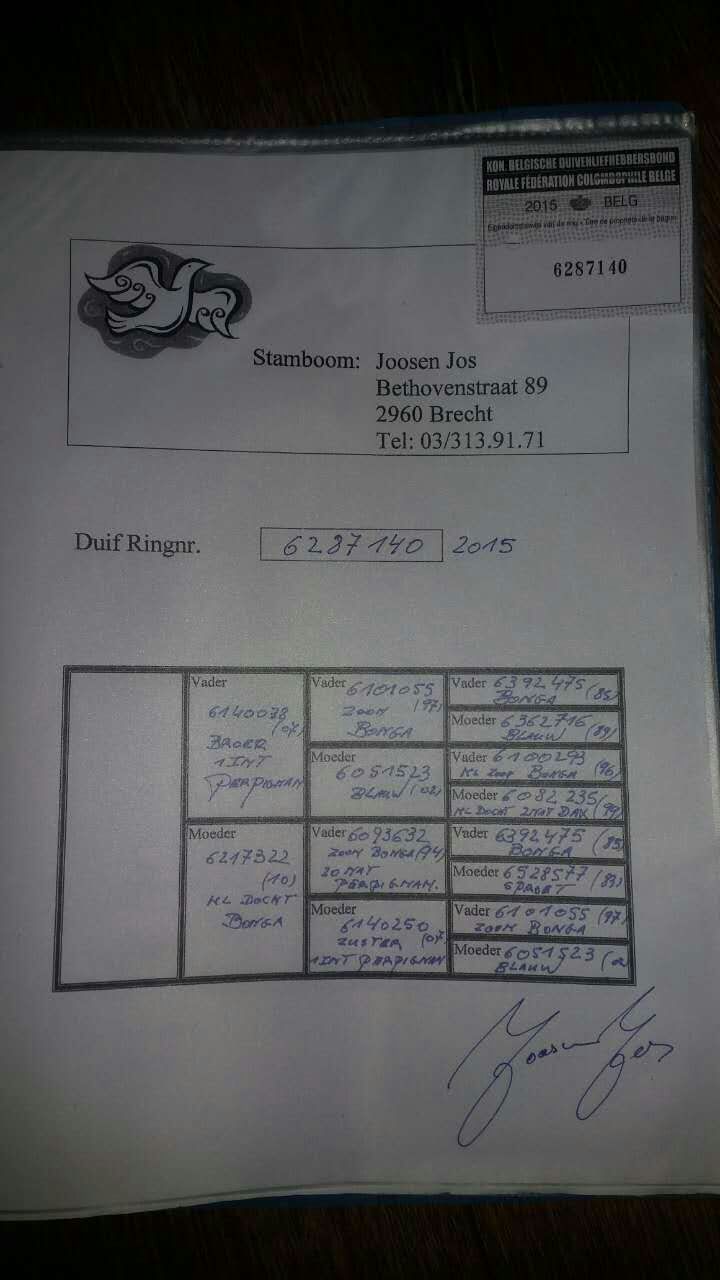 KON. BELGISCHE DUIVENLIEFHEBBERSBOND
ROYALE FÉDÉRATION COLOMBOPHILE BELGE
2015 BELG
Eigendomsbewijs van de ring - Titre de propriété de la bague
6287140
Stamboom: Joosen Jos
Bethovenstraat 89
2960 Brecht
Tel: 03/313.91.71
Duif Ringnr. 6287140 2015
Vader
6140038
(07)
BROER
1INT
PERPIGNAN
Moeder
6217322
(10)
KL DOCHT
BONGA
Vader 6101055
ZOON (97)
BONGA
Moeder
6051523
BLAUW (02)
Vader 6093632
ZOON BONGA (94)
20 NAT
PERPIGNAN.
Moeder
6140250
ZUSTER (07)
1INT PERPIGNAN
Vader 6392475
BONGA (85)
Moeder 6362716
BLAUW (89)
Vader 6100293
KL ZOON BONGA (96)
Moeder 6082235
KL DOCHT 2NAT DAX (99)
Vader 6392475
BONGA (85)
Moeder 6528577
(83)
Vader 6101055 (97)
ZOON BONGA
Moeder 6051523
BLAUW
Joosen Jos